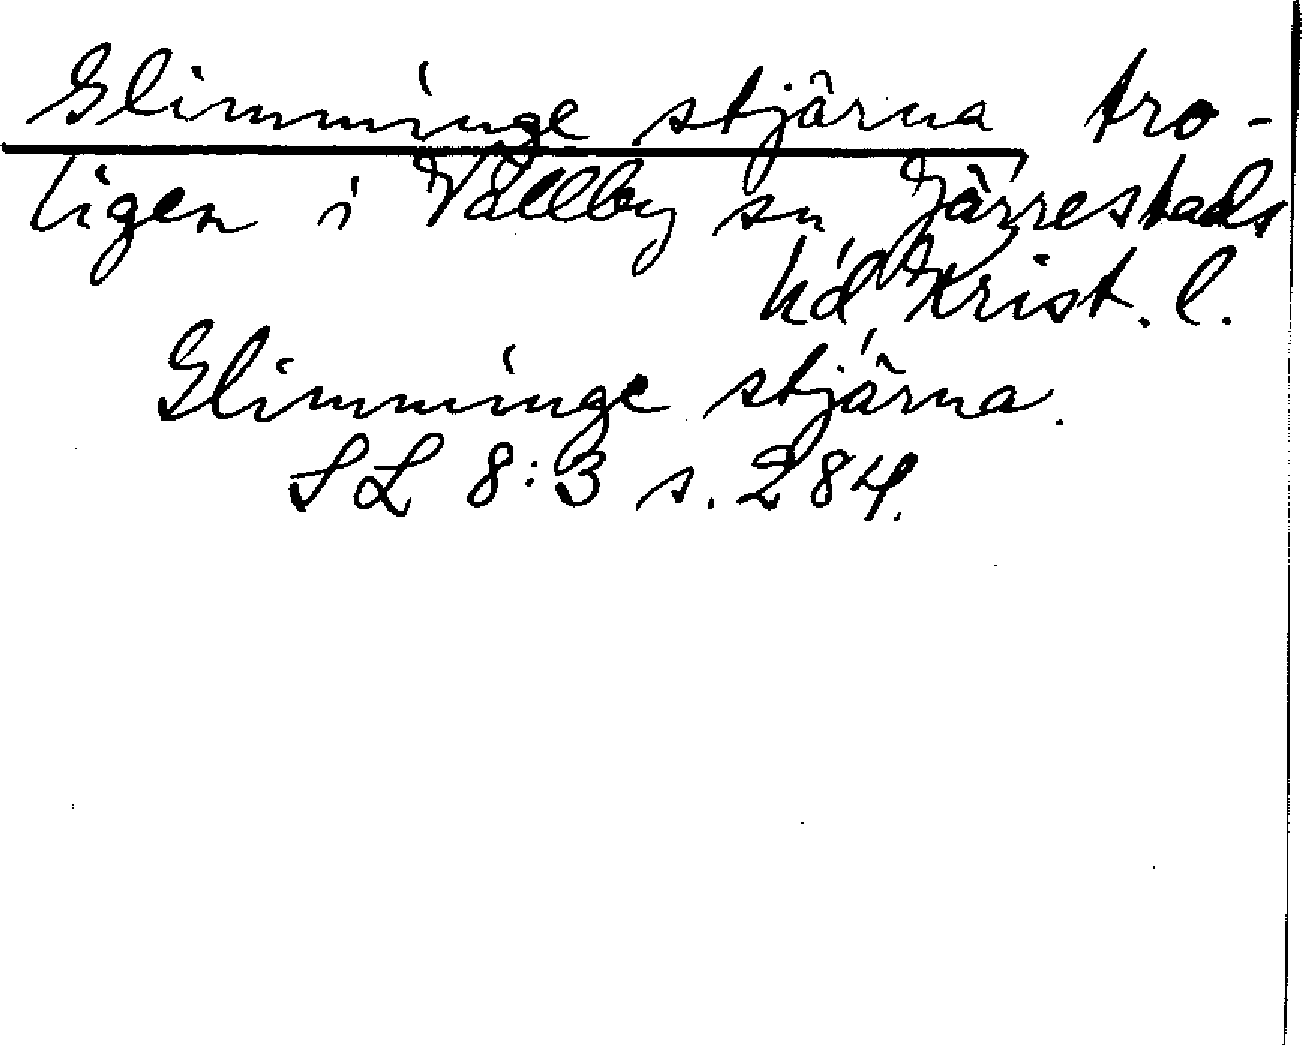 Glimminge stjärna tro-
ligen i Vallby sn Järrestads
hd, Krist. l.
Glimminge stjärna.
SL 8:3 s. 284.